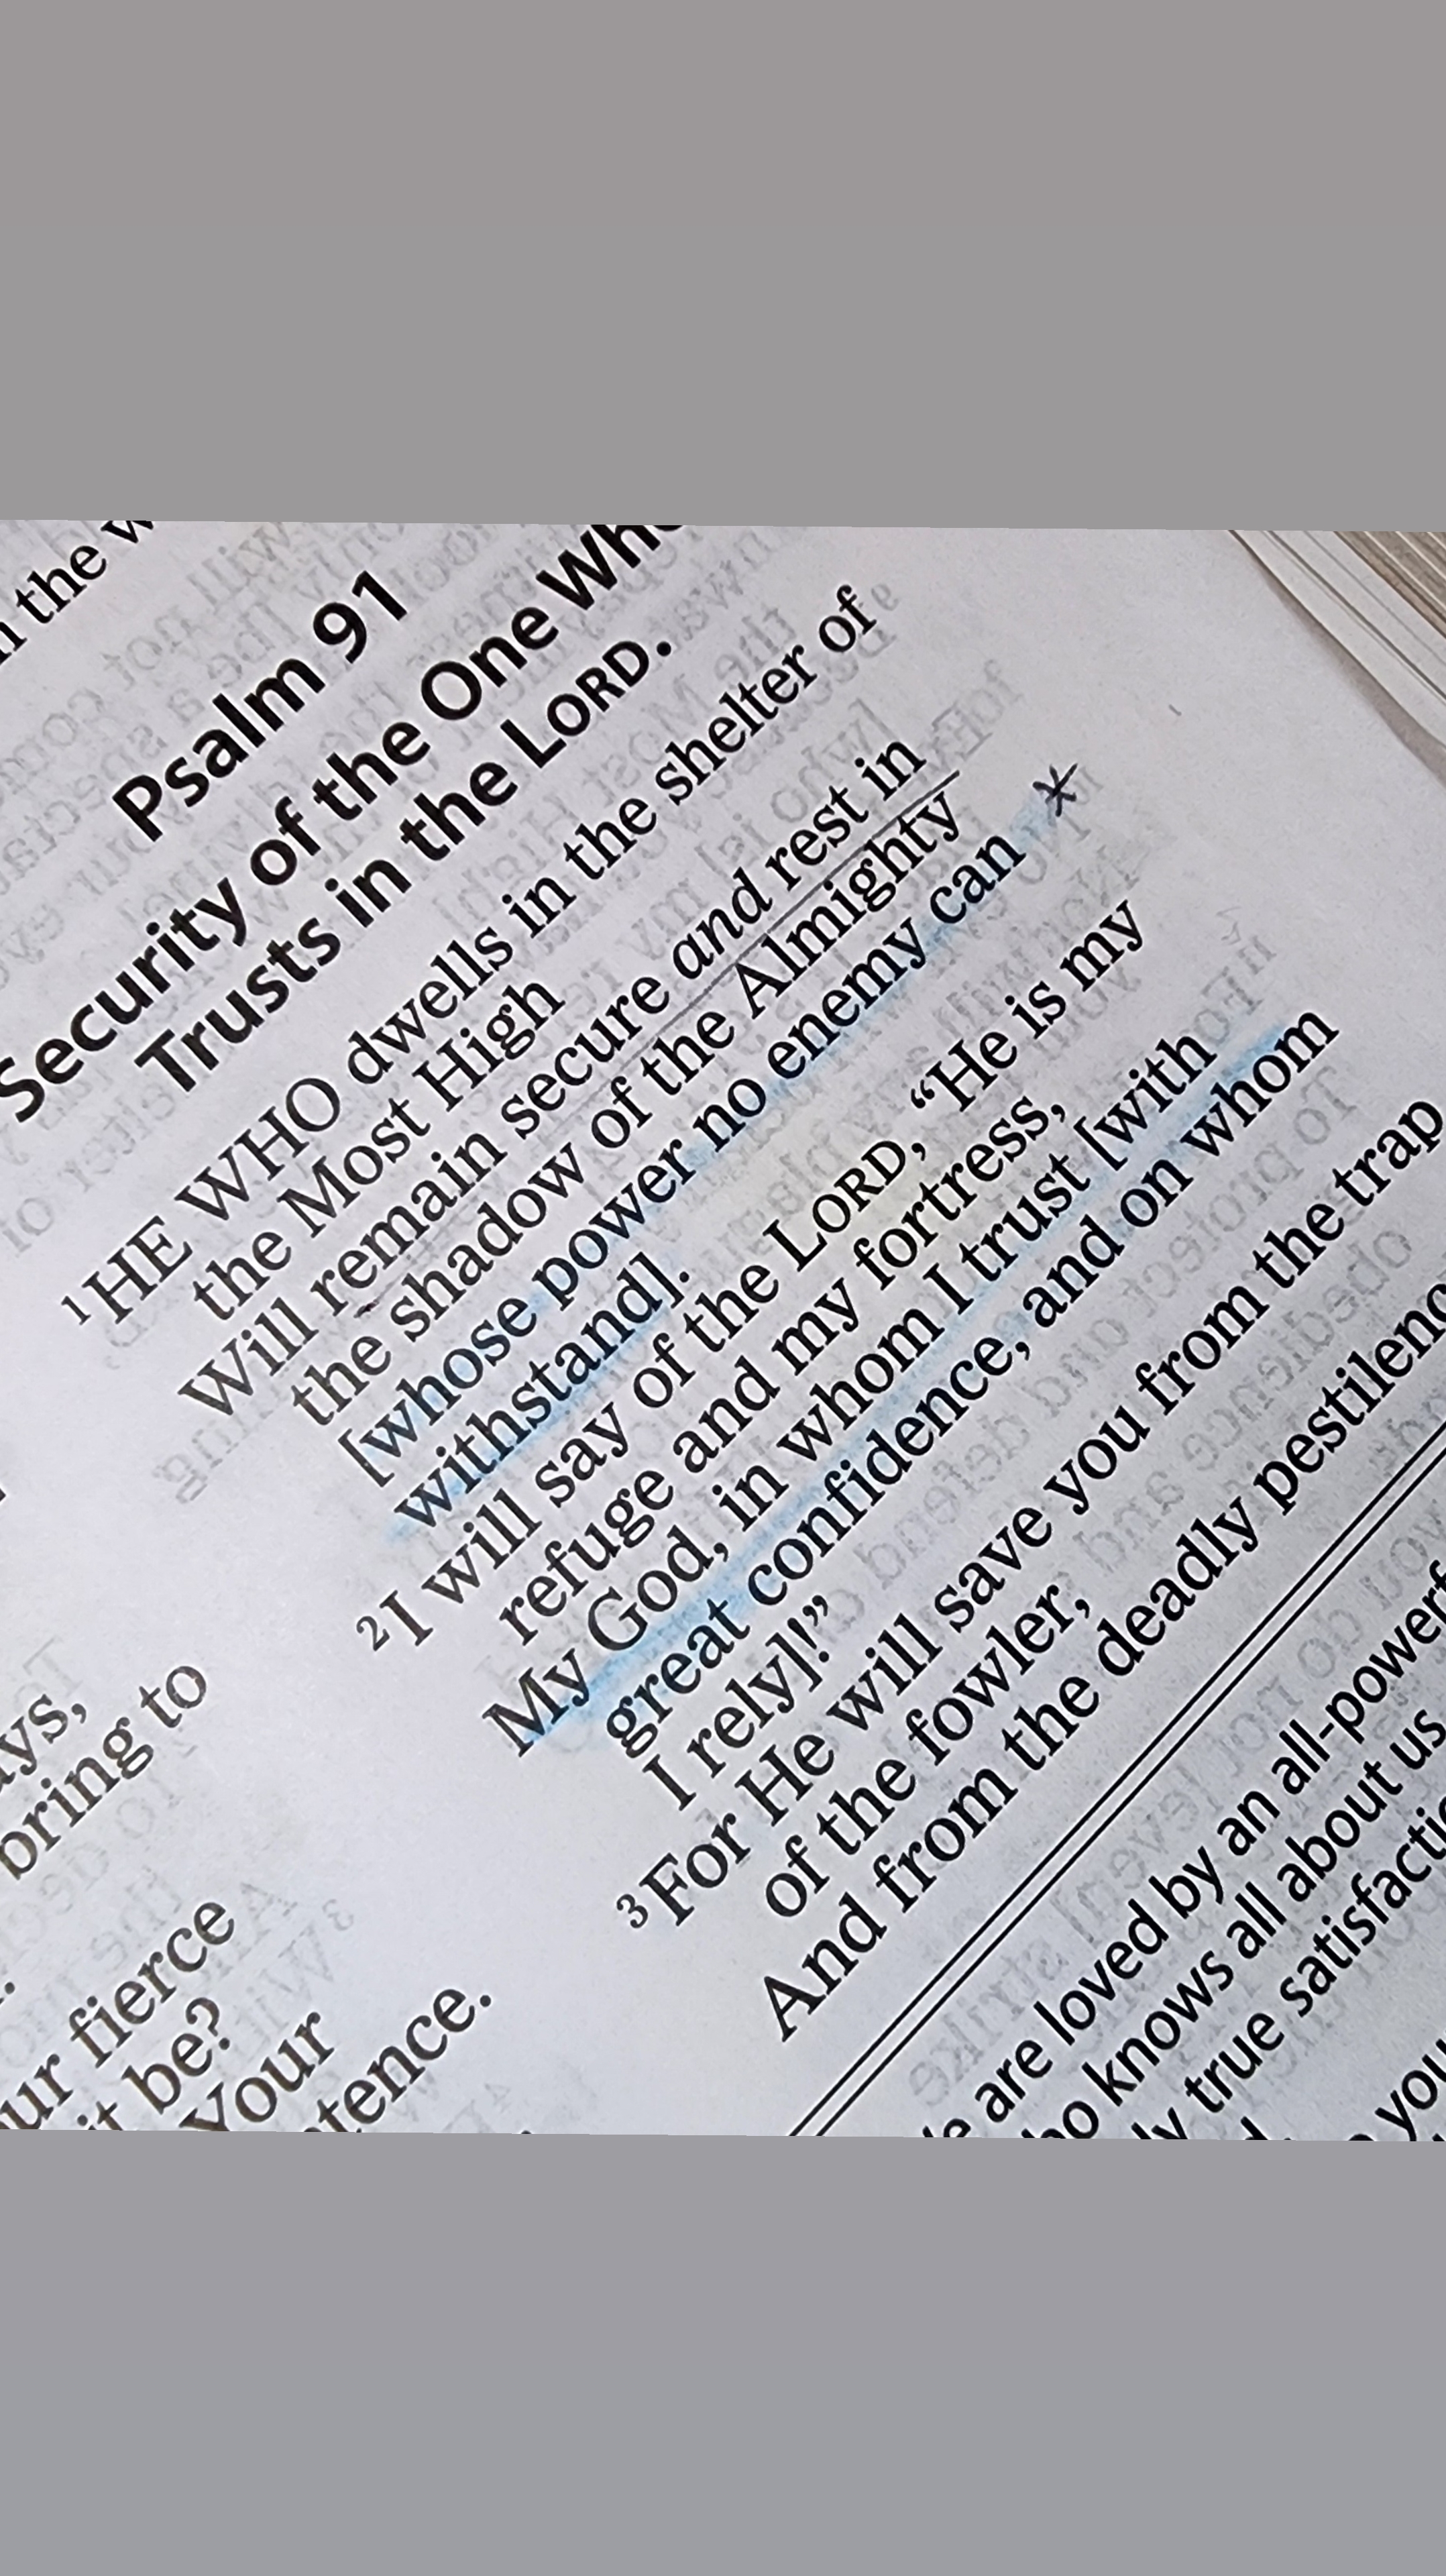 n the w
Psalm 91
Security of the One Who
Trusts in the LORD.
1HE WHO dwells in the shelter of
the Most High
Will remain secure and rest in
the shadow of the Almighty
[whose power no enemy can
withstand].
2I will say of the LORD, “He is my
refuge and my fortress,
My God, in whom I trust [with
great confidence, and on whom
I rely]!”
3For He will save you from the trap
of the fowler,
And from the deadly pestilenc
ays,
bring to
ur fierce
it be?
your
tence.
are loved by an all-powerf
ho knows all about us
ly true satisfacti
you